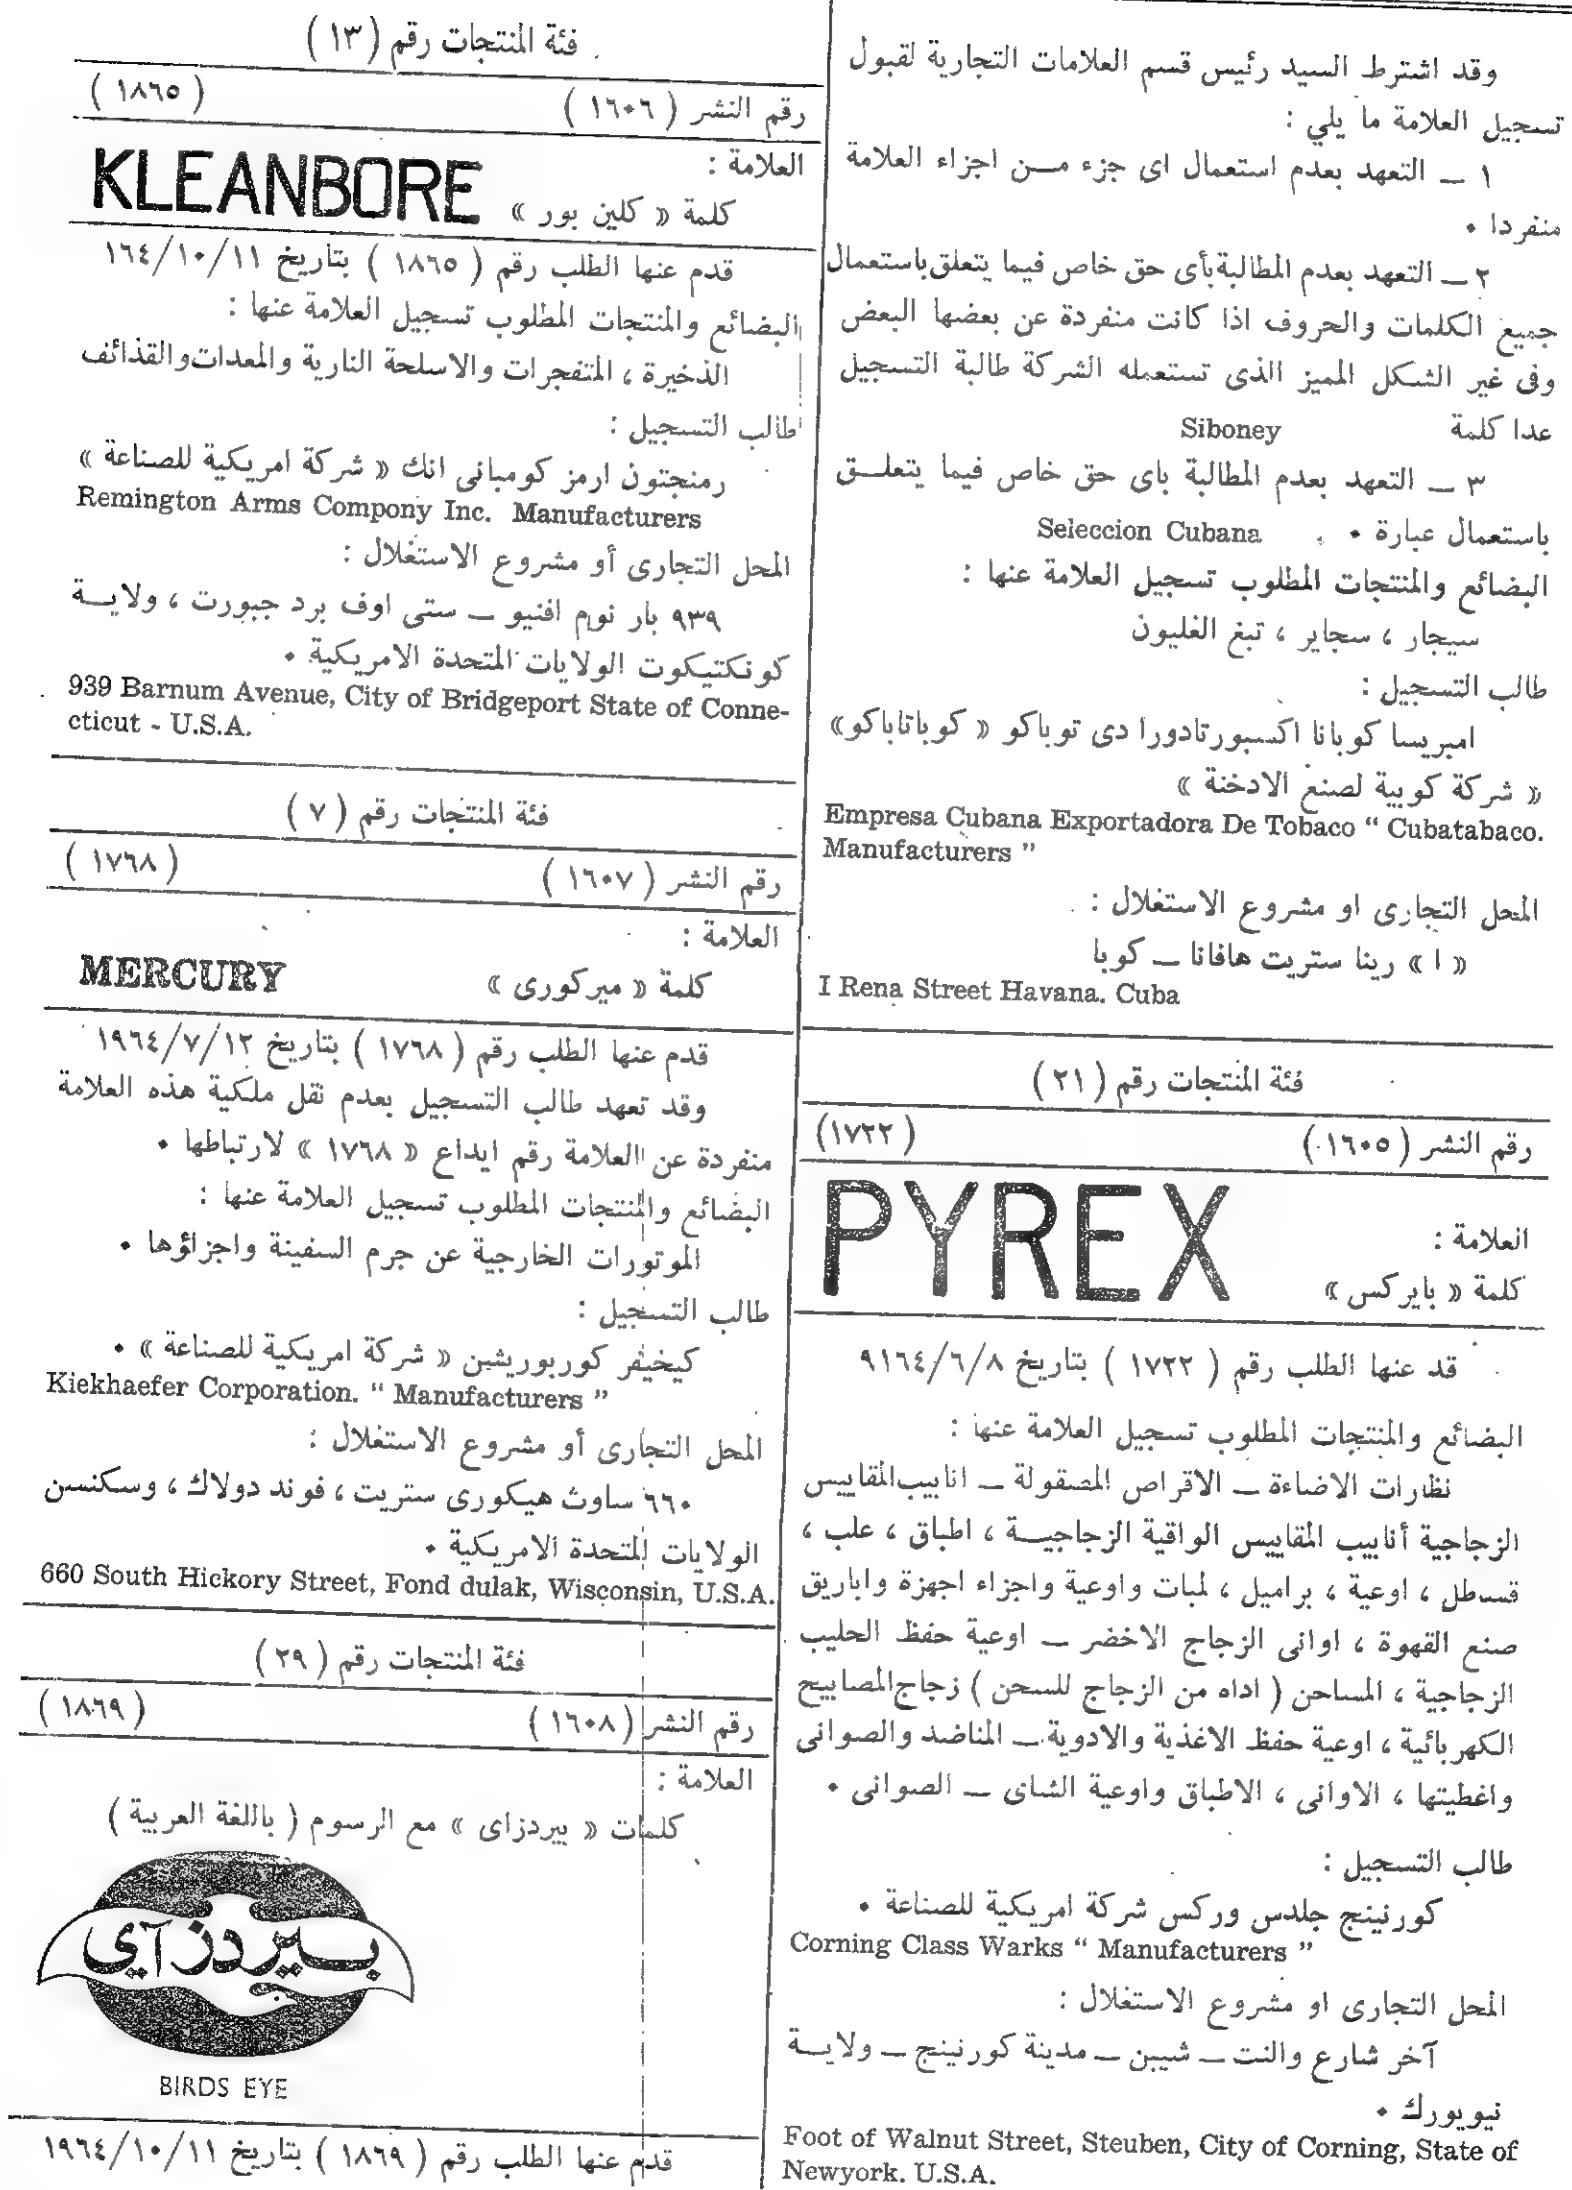 وقد اشترط السيد رئيس قسم العلامات التجارية لقبول
تسجيل العلامة ما يلي :
١ ــ التعهد بعدم استعمال اى جزء مــن اجزاء العلامة
منفردا ٠
٢ ــ التعهد بعدم المطالبة بأى حق خاص فيما يتعلق باستعمال
جميع الكلمات والحروف اذا كانت منفردة عن بعضها البعض
وفى غير الشكل المميز الذى تستعمله الشركة طالبة التسجيل
عدا كلمة Siboney
٣ ــ التعهد بعدم المطالبة باى حق خاص فيما يتعلــق
باستعمال عبارة ٠ Seleccion Cubana
البضائع والمنتجات المطلوب تسجيل العلامة عنها :
سيجار ، سجاير ، تبغ الغليون
طالب التسجيل :
امبريسا كوبانا اكسبورتادورا دى توباكو « كوباتاباكو»
« شركة كوبية لصنع الادخنة »
Empresa Cubana Exportadora De Tobaco “ Cubatabaco.
Manufacturers ”
المحل التجارى او مشروع الاستغلال :
« ا » رينا ستريت هافانا ــ كوبا
I Rena Street Havana. Cuba
فئة المنتجات رقم ( ٢١ )
رقم النشر ( ١٦٠٥ ) (١٧٢٢ )
العلامة :
PYREX
كلمة « بايركس »
قد عنها الطلب رقم ( ١٧٢٢ ) بتاريخ ٩١٦٤/٦/٨
البضائع والمنتجات المطلوب تسجيل العلامة عنها :
نظارات الاضاءة ــ الاقراص المصقولة ــ انابيب المقاييس
الزجاجية أنابيب المقاييس الواقية الزجاجيــة ، اطباق ، علب ،
قسطل ، اوعية ، براميل ، لمبات واوعية واجزاء اجهزة واباريق
صنع القهوة ، اوانى الزجاج الاخضر ــ اوعية حفظ الحليب
الزجاجية ، المساحن ( اداه من الزجاج للسحن ) زجاج المصابيح
الكهربائية ، اوعية حفظ الاغذية والادوية ــ المناضد والصوانى
واغطيتها ، الاوانى ، الاطباق واوعية الشاى ــ الصوانى ٠
طالب التسجيل :
كورنينج جلدس وركس شركة امريكية للصناعة ٠
Corning Class Warks “ Manufacturers ”
المحل التجارى او مشروع الاستغلال :
آخر شارع والنت ــ شيبن ــ مدينة كورنينج ــ ولايــة
نيويورك ٠
Foot of Walnut Street, Steuben, City of Corning, State of
Newyork. U.S.A.
فئة المنتجات رقم ( ١٣ )
رقم النشر ( ١٦٠٦ ) ( ١٨٦٥ )
العلامة :
KLEANBORE
كلمة « كلين بور »
قدم عنها الطلب رقم ( ١٨٦٥ ) بتاريخ ١٦٤/١٠/١١
البضائع والمنتجات المطلوب تسجيل العلامة عنها :
الذخيرة ، المتفجرات والاسلحة النارية والمعدات والقذائف
طالب التسجيل :
رمنجتون ارمز كومبانى انك « شركة امريكية للصناعة »
Remington Arms Compony Inc. Manufacturers
المحل التجارى أو مشروع الاستغلال :
٩٣٩ بار نوم افنيو ــ ستى اوف برد جبورت ، ولايــة
كونكتيكوت الولايات المتحدة الامريكية ٠
939 Barnum Avenue, City of Bridgeport State of Conne-
cticut - U.S.A.
فئة المنتجات رقم ( ٧ )
رقم النشر ( ١٦٠٧ ) ( ١٧٦٨ )
العلامة :
كلمة « ميركورى » MERCURY
قدم عنها الطلب رقم ( ١٧٦٨ ) بتاريخ ١٩٦٤/٧/١٢
وقد تعهد طالب التسجيل بعدم نقل ملكية هذه العلامة
منفردة عن العلامة رقم ايداع « ١٧٦٨ » لارتباطها ٠
البضائع والمنتجات المطلوب تسجيل العلامة عنها :
الموتورات الخارجية عن جرم السفينة واجزاؤها ٠
طالب التسجيل :
كيخيفر كوربوريشين « شركة امريكية للصناعة » ٠
Kiekhaefer Corporation. “ Manufacturers ”
المحل التجارى أو مشروع الاستغلال :
٦٦٠ ساوث هيكورى ستريت ، فوند دولاك ، وسكنسن
الولايات المتحدة الامريكية ٠
660 South Hickory Street, Fond dulak, Wisconsin, U.S.A.
فئة المنتجات رقم ( ٢٩ )
رقم النشر ( ١٦٠٨ ) ( ١٨٦٩ )
العلامة :
كلمات « بيردزاى » مع الرسوم ( باللغة العربية )
بيردزآي
BIRDS EYE
قدم عنها الطلب رقم ( ١٨٦٩ ) بتاريخ ١٩٦٤/١٠/١١